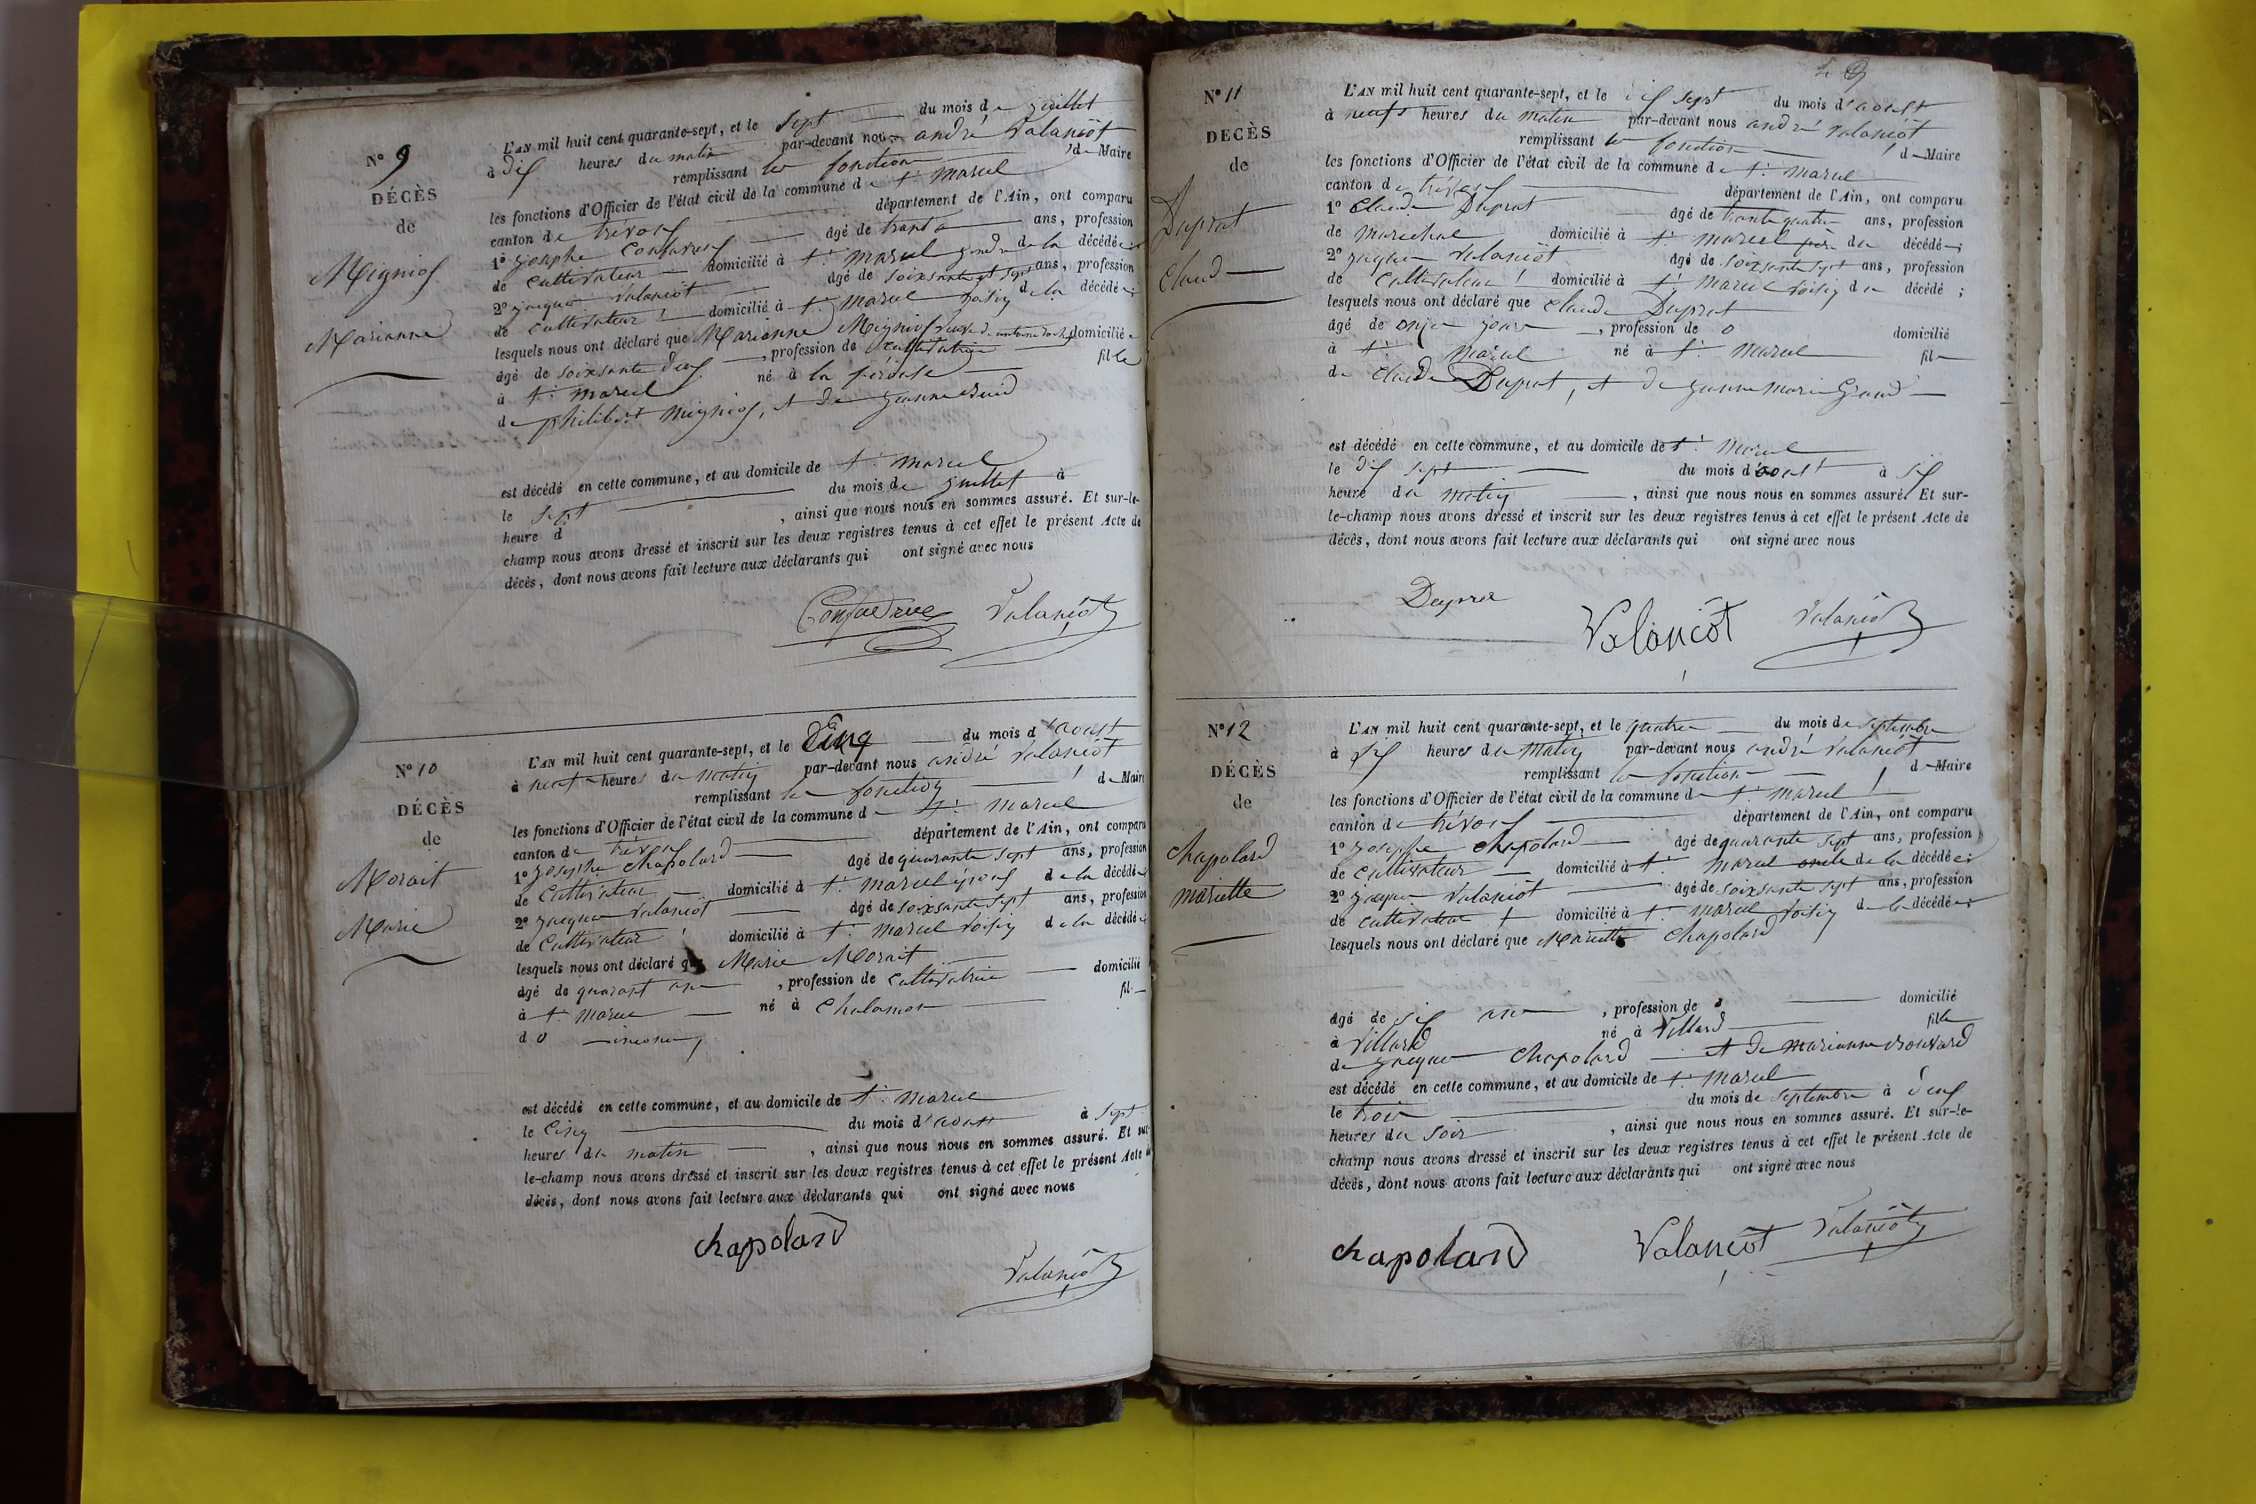 N° 9
DÉCÈS
de
Migniot
Marianne
L'AN mil huit cent quarante-sept, et le sept du mois de juillet
à dix heures du matin par-devant nous andré Valançot
remplissant les fonction de Maire
les fonctions d'Officier de l'état civil de la commune de St marcel
canton de trévoux département de l'Ain, ont comparu
1° josephe âgé de trante ans, profession
de cultivateur domicilié à St marcel gendre de la décédée
2° jacque Valançot âgé de soixsante et sept ans, profession
de cultivateur domicilié à St marcel voisin de la décédée;
lesquels nous ont déclaré que Marianne veuve de domicilié
âgé de soixsante dix, profession de cultivatrice
à St marcel né à la pérouse fille
de philibert et de jeanne
est décédé en cette commune, et au domicile de St marcel
le sept du mois de juillet à
heure d , ainsi que nous nous en sommes assuré. Et sur-le-
champ nous avons dressé et inscrit sur les deux registres tenus à cet effet le présent Acte de
décès, dont nous avons fait lecture aux déclarants qui ont signé avec nous
Valançot
N° 10
DÉCÈS
de
Morait
Marie
L'AN mil huit cent quarante-sept, et le Cinq du mois d'aoust
à neuf heures du matin par-devant nous andré Valançot
remplissant les fonction de Maire
les fonctions d'Officier de l'état civil de la commune de St marcel
canton de trévoux département de l'Ain, ont comparu
1° josephe chapolard âgé de quarante sept ans, profession
de cultivateur domicilié à St marcel époux de la décédée
2° jacque Valançot âgé de soixsante sept ans, profession
de cultivateur domicilié à St marcel voisin de la décédée
lesquels nous ont déclaré que Marie Morait
âgé de quarant ans, profession de cultivatrice domicilié
à St marcel né à Chalamon fil
d
est décédé en cette commune, et au domicile de St marcel
le cinq du mois d'aoust à sept
heures du matin, ainsi que nous nous en sommes assuré. Et sur-
le-champ nous avons dressé et inscrit sur les deux registres tenus à cet effet le présent Acte de
décès, dont nous avons fait lecture aux déclarants qui ont signé avec nous
chapolard
Valançot
N° 11
DECÈS
de
Duprat
Claude
L'AN mil huit cent quarante-sept, et le dix sept du mois d'aoust
à neufs heures du matin par-devant nous andré Valançot
remplissant les fonction de Maire
les fonctions d'Officier de l'état civil de la commune de St marcel
canton de trévoux département de l'Ain, ont comparu
1° Claude Duprat âgé de trante quatre ans, profession
de marechal domicilié à St marcel père du décédé;
2° jacque Valançot âgé de soixsante sept ans, profession
de cultivateur domicilié à St marcel voisin du décédé;
lesquels nous ont déclaré que Claude Duprat
âgé de onze jours, profession de o domicilié
à St marcel né à St marcel fil
de Claude Duprat, et de jeanne marie Giraud
est décédé en cette commune, et au domicile de St marcel
le dix sept du mois d'aoust à six
heure du matin, ainsi que nous nous en sommes assuré. Et sur-
le-champ nous avons dressé et inscrit sur les deux registres tenus à cet effet le présent Acte de
décès, dont nous avons fait lecture aux déclarants qui ont signé avec nous
Duprat
Valançot Valançot
N° 12
DÉCÈS
de
chapolard
mariette
L'AN mil huit cent quarante-sept, et le quatre du mois de septembre
à dix heures du matin par-devant nous andré Valançot
remplissant les fonction de Maire
les fonctions d'Officier de l'état civil de la commune de St marcel
canton de trévoux département de l'Ain, ont comparu
1° josephe chapolard âgé de quarante sept ans, profession
de cultivateur domicilié à St marcel oncle de la décédée;
2° jacque Valançot âgé de soixsante sept ans, profession
de cultivateur domicilié à St marcel voisin de la décédée;
lesquels nous ont déclaré que Mariette chapolard
âgé de six ans, profession de o domicilié
à Villard né à Villard fille
de jacque chapolard et de marianne Bouvard
est décédé en cette commune, et au domicile de St marcel
le trois du mois de septembre à deux
heures du soir, ainsi que nous nous en sommes assuré. Et sur-le-
champ nous avons dressé et inscrit sur les deux registres tenus à cet effet le présent Acte de
décès, dont nous avons fait lecture aux déclarants qui ont signé avec nous
chapolard Valançot Valançot